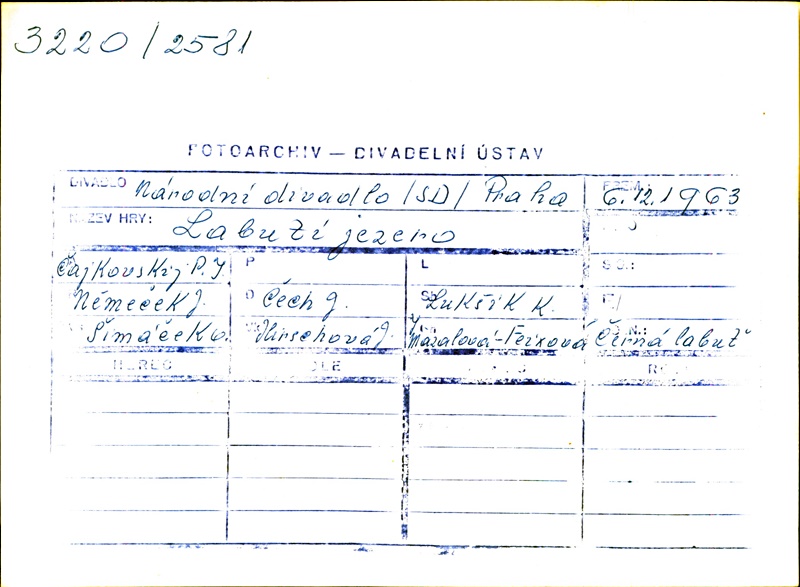 3220/2581
FOTOARCHIV — DIVADELNÍ ÚSTAV
DIVADLO Národní divadlo /SD/ Praha 6.12.1963
NÁZEV HRY: Labutí jezero
Čajkovskij P. I. P L SO.:
Němeček J. D Čech J. Lukšík K.
Šimáček O. Hirschová J. Černá labuť
HEREC